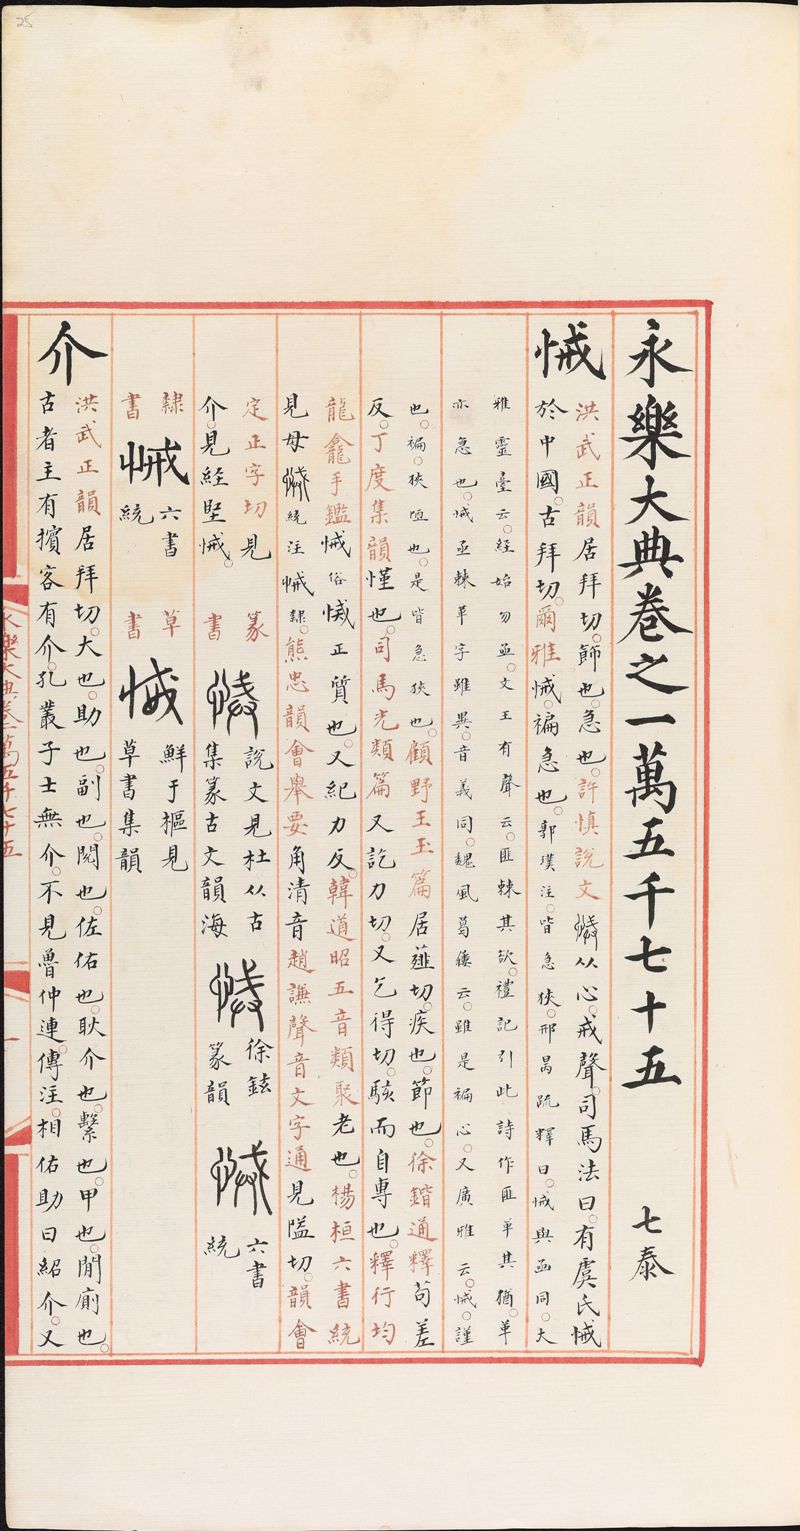 25
永樂大典卷之一萬五千七十五 七泰
悈
洪武正韻居拜切。飾也。急也。許慎說文悈从心。戒聲。司馬法曰。有虞氏悈
於中國。古拜切。爾雅悈。褊急也。郭璞注。皆急狹。邢昺疏釋曰。悈與亟同。大
雅靈臺云。經始勿亟。文王有聲云。匪棘其欲。禮記引此詩作匪革其猶。革
亦急也。悈亟棘革字雖異。音義同。魏風葛屨云。雖是褊心。又廣雅云。悈。謹
也。褊。狹陋也。是皆急狹也。顧野王玉篇居薤切。疾也。飾也。徐鍇通釋苟差
反。丁度集韻慬也。司馬光類篇又訖力切。又乞得切。駭而自專也。釋行均
龍龕手鑑悈俗悈正質也。又紀力反。韓道昭五音類聚老也。楊桓六書統
見母悈統注悈隸。熊忠韻會舉要角清音趙謙聲音文字通見隘切。韻會
定正字切見
介。見經堅悈。
篆書
悈
說文見杜从古
集篆古文韻海
悈
徐鉉
篆韻
悈
六書
統
隸書
悈
六書
統
草書
悈
鮮于樞見
草書集韻
介
洪武正韻居拜切。大也。助也。副也。閱也。佐佑也。耿介也。繫也。甲也。閒廁也。
古者主有擯客有介。孔叢子士無介。不見魯仲連。傳注。相佑助曰紹介。又
永樂大典卷一萬五千七十五
一